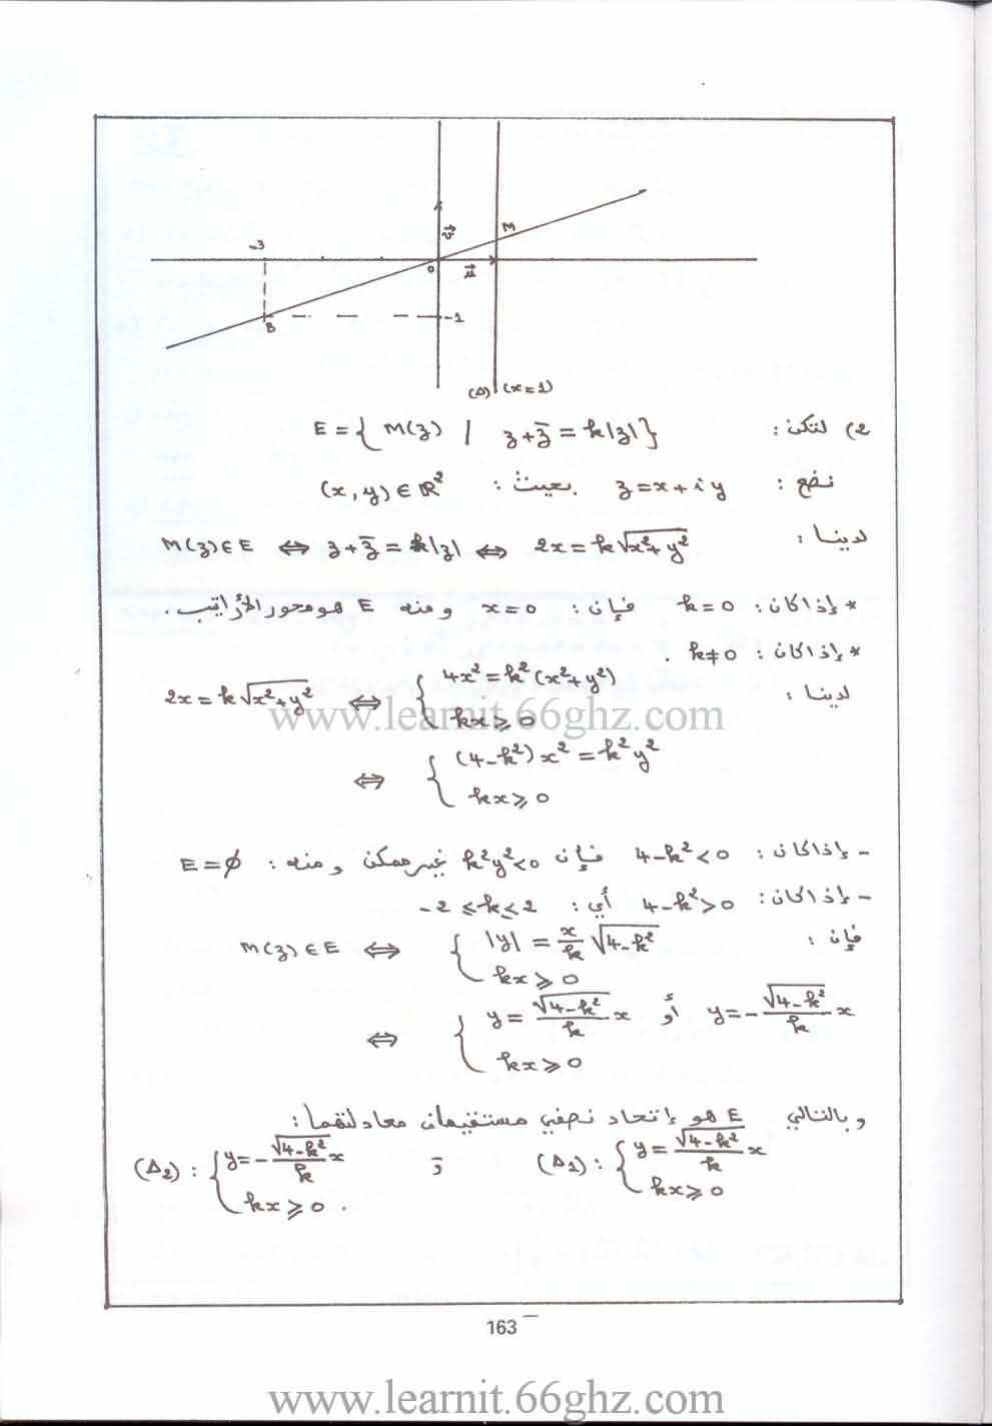 -3
v⃗
M
O
u⃗
B
-1
(Δ) (x=1)
2) لتكن : E = { M(z) | z + z̄ = k|z| }
نضع : z = x + iy بحيث : (x, y) ∈ ℝ²
لدينا : M(z) ∈ E ⇔ z + z̄ = k|z| ⇔ 2x = k√(x² + y²)
* إذا كان : k = 0 فإن : x = 0 ومنه E هو محور الأراتيب .
* إذا كان : k ≠ 0 .
لدينا : 2x = k√(x² + y²) ⇔ { 4x² = k²(x² + y²)
kx ⩾ 0
⇔ { (4 - k²)x² = k²y²
kx ⩾ 0
- إذا كان : 4 - k² < 0 فإن k²y² < 0 غير ممكن ومنه : E = ∅
- إذا كان : 4 - k² > 0 أي : -2 ⩽ k ⩽ 2
فإن : M(z) ∈ E ⇔ { |y| = x/k √(4 - k²)
kx ⩾ 0
⇔ { y = √(4 - k²)/k x أو y = -√(4 - k²)/k x
kx ⩾ 0
وبالتالي E هو إتحاد نصفي مستقيمان معادلتهما :
(Δ1) : { y = √(4 - k²)/k x و (Δ2) : { y = -√(4 - k²)/k x
kx ⩾ 0 kx ⩾ 0 .
163
www.learnit.66ghz.com
www.learnit.66ghz.com